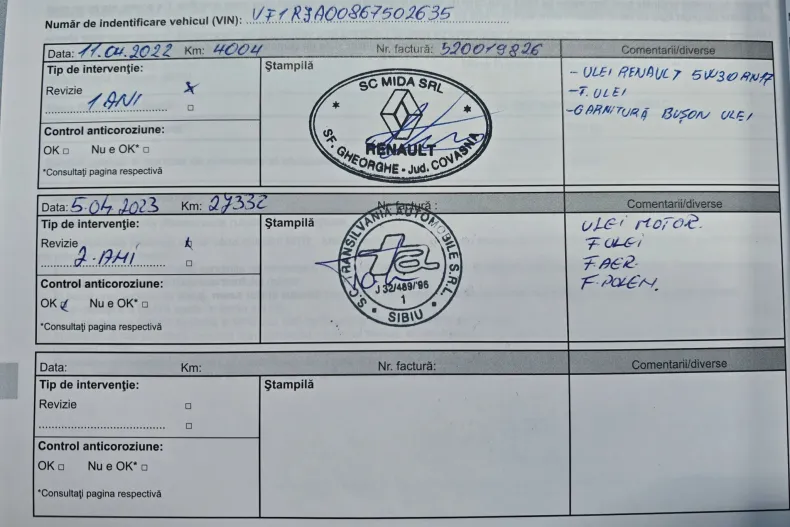 Număr de indentificare vehicul (VIN): VF1RJA00867502635
Data: 11.04.2022 Km: 4004 Nr. factură: 520019826 Comentarii/diverse
Tip de intervenţie: Ştampilă
Revizie x
1 AN!
- ULEI RENAULT 5W30 RN17
- F. ULEI
- GARNITURĂ BUŞON ULEI
SC MIDA SRL
RENAULT
SF. GHEORGHE - Jud. COVASNA
Control anticoroziune:
OK □ Nu e OK* □
*Consultaţi pagina respectivă
Data: 5.04.2023 Km: 27332 Nr. factură: Comentarii/diverse
Tip de intervenţie: Ştampilă
Revizie
2.ANI
ULEI MOTOR.
F ULEI
F AER.
F. POLEN.
S.C. TRANSILVANIA AUTOMOBILE S.R.L.
ta
J 32/489/'96
1
SIBIU
Control anticoroziune:
OK Nu e OK* □
*Consultaţi pagina respectivă
Data: Km: Nr. factură: Comentarii/diverse
Tip de intervenţie: Ştampilă
Revizie □
□
Control anticoroziune:
OK □ Nu e OK* □
*Consultaţi pagina respectivă